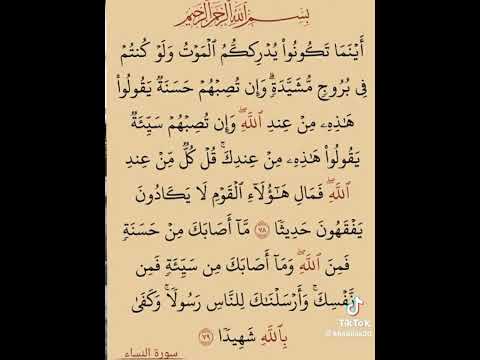 بِسْمِ ٱللَّهِ ٱلرَّحْمَٰنِ ٱلرَّحِيمِ
أَيْنَمَا تَكُونُوا۟ يُدْرِككُّمُ ٱلْمَوْتُ وَلَوْ كُنتُمْ
فِى بُرُوجٍ مُّشَيَّدَةٍ ۗ وَإِن تُصِبْهُمْ حَسَنَةٌ يَقُولُوا۟
هَٰذِهِۦ مِنْ عِندِ ٱللَّهِ ۖ وَإِن تُصِبْهُمْ سَيِّئَةٌ
يَقُولُوا۟ هَٰذِهِۦ مِنْ عِندِكَ ۚ قُلْ كُلٌّ مِّنْ عِندِ
ٱللَّهِ ۖ فَمَالِ هَٰٓؤُلَآءِ ٱلْقَوْمِ لَا يَكَادُونَ
يَفْقَهُونَ حَدِيثًا ٧٨ مَّآ أَصَابَكَ مِنْ حَسَنَةٍ
فَمِنَ ٱللَّهِ ۖ وَمَآ أَصَابَكَ مِن سَيِّئَةٍ فَمِن
نَّفْسِكَ ۚ وَأَرْسَلْنَٰكَ لِلنَّاسِ رَسُولًا ۚ وَكَفَىٰ
بِٱللَّهِ شَهِيدًا ٧٩
سورة النساء
TikTok